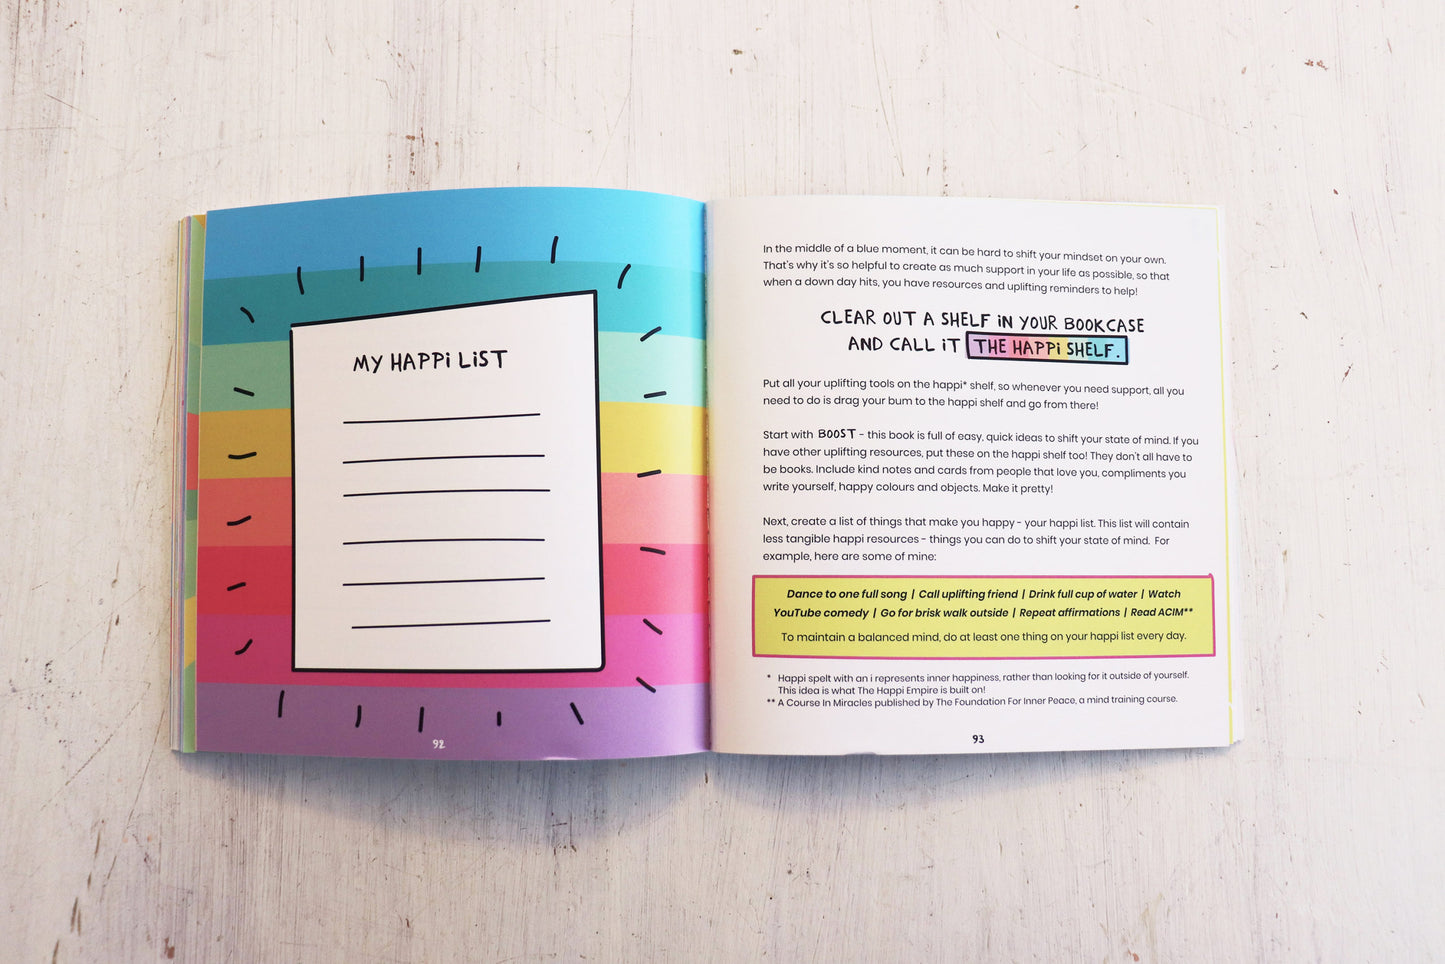 MY HAPPi LiST
92
In the middle of a blue moment, it can be hard to shift your mindset on your own.
That's why it's so helpful to create as much support in your life as possible, so that
when a down day hits, you have resources and uplifting reminders to help!
CLEAR OUT A SHELF iN YOUR BOOKCASE
AND CALL iT THE HAPPi SHELF.
Put all your uplifting tools on the happi* shelf, so whenever you need support, all you
need to do is drag your bum to the happi shelf and go from there!
Start with BOOST - this book is full of easy, quick ideas to shift your state of mind. If you
have other uplifting resources, put these on the happi shelf too! They don't all have to
be books. Include kind notes and cards from people that love you, compliments you
write yourself, happy colours and objects. Make it pretty!
Next, create a list of things that make you happy - your happi list. This list will contain
less tangible happi resources - things you can do to shift your state of mind. For
example, here are some of mine:
Dance to one full song | Call uplifting friend | Drink full cup of water | Watch
YouTube comedy | Go for brisk walk outside | Repeat affirmations | Read ACIM**
To maintain a balanced mind, do at least one thing on your happi list every day.
* Happi spelt with an i represents inner happiness, rather than looking for it outside of yourself.
This idea is what The Happi Empire is built on!
** A Course In Miracles published by The Foundation For Inner Peace, a mind training course.
93